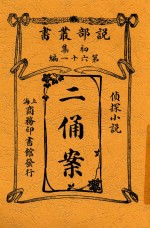 書叢部説
集初
編一十六第
偵探小説
二俑案
上海商務印書館發行